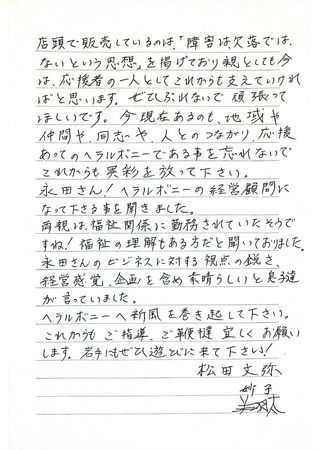 店頭で販売しているのは、「障害は欠落では、
ないという思想」を掲げており親としても今
は、応援者の一人としてこれからも支えていけれ
ばと思います。ぜひぶれないで頑張って
ほしいです。今現在あるのも、地域や
仲間や、同志や、人とのつながり、応援
あってのヘラルボニーである事を忘れないで
これからも異彩を放って下さい。
永田さん！ヘラルボニーの経営顧問に
なって下さる事を聞きました。
両親は、福祉関係に勤務されていたそうで
すね！福祉の理解もある方だと聞いておりました。
永田さんのビジネスに対する視点の鋭さ、
経営感覚、企画を含め素晴らしいと息子達
が言っていました。
ヘラルボニーへ新風を巻き起して下さい。
これからもご指導、ご鞭撻宜しくお願い
します。岩手にもぜひ遊びに来て下さい！
松田文弥
妙子
翔太